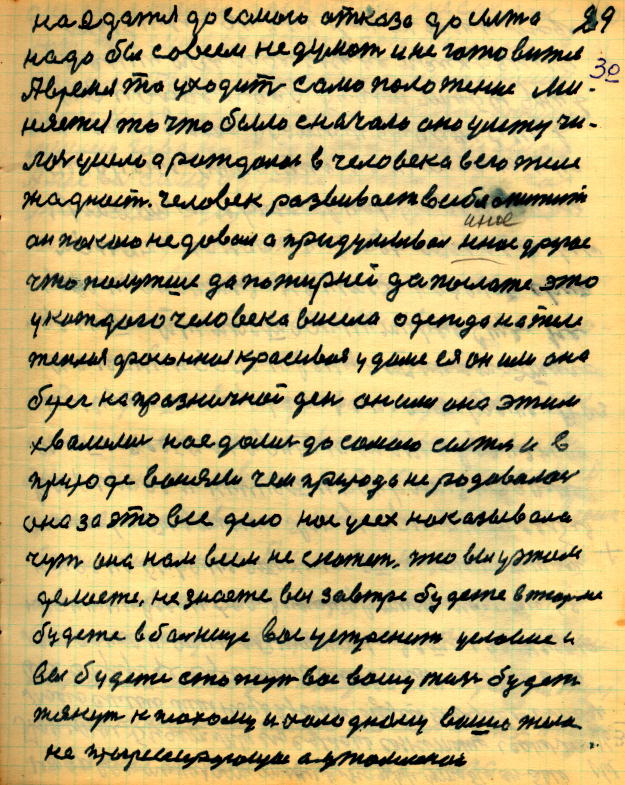 наедатся до самого отказа до сыта 29
надо бы совсем не думат и не готовится 30
А время то уходит само положение ми-
няется то что было сначало оно улетучи-
лос ушло а рождалос в человека в его теле
жадност. Человек развивает в себе апитит
он покою не довал а придумывал иное другое
что получше да пожирней да послаже это
у каждого человека висела одежда на теле
теплая драповая красивая у доме ея он или она
берег на празничной ден он или она этим
хвалилис наедалис до самого сыта и в
природе воняли чем природа не радовалас
она за это все дело нас усех наказывала
чут она нам всем не скажет. что вы утром
делаете, не знаете вы завтре будете в тюрме
будете в болнице вас устренит условие и
вы будете стожут вас вашу тил будет
тянут к плохому и холодному ваше тело
не прогресирующие а утомленое